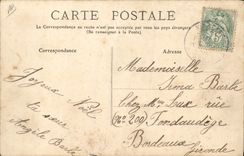 CARTE POSTALE
La Correspondance au recto n'est pas acceptée par tous les pays étrangers
(Se renseigner à la Poste)
Correspondance
Adresse
Joyeux Noël
te vous
Angèle Barle
Mademoiselle
Irma Barle
Chez Mr Dux rue
(No 200) Fondaudège
Bordeaux
Gironde